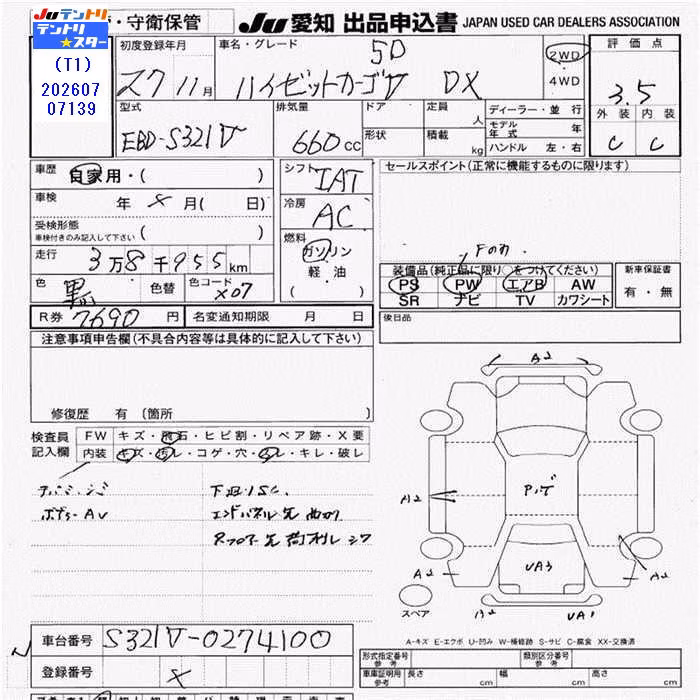 Juテントリ
テントリ
スター
(T1)
202607
07139
・守衛保管
Ju愛知 出品申込書
JAPAN USED CAR DEALERS ASSOCIATION
初度登録年月
27 11月
車名・グレード
5D
ハイゼットカーゴV DX
2WD
4WD
評価点
3.5
外装 内装
C C
型式
EBD-S321V
排気量
660cc
ドア
形状
定員
人
積載
kg
ディーラー・並行
モデル年式 年
ハンドル 左・右
車歴
自家用・( )
車検
年 月( 日)
受検形態
車検付きのみ記入して下さい ( )
走行
3万8千955km
色
黒
色替
色コード
X07
シフト
IAT
冷房
AC
燃料
ガソリン
軽油
( )
セールスポイント(正常に機能するものに限ります)
Fのみ
装備品(純正品に限り○をつけてください)
PS PW エアB AW
SR ナビ TV カワシート
新車保証書
有・無
R券 7690円
名変通知期限 月 日
後日品
注意事項申告欄(不具合内容等は具体的に記入して下さい)
修復歴 有 [箇所 ]
検査員
記入欄
FW キズ・飛石・ヒビ割・リペア跡・X要
内装 キズ・汚レ・コゲ・穴・スレ・キレ・破レ
下廻リSC
A2
A2
A2
A2
UA3
UA1
スペア
A-キズ E-エクボ U-凹み W-補修跡 S-サビ C-腐食 XX-交換済
車台番号 S321V-0274100
登録番号
形式指定番号
参考
類別区分番号
参考
車庫証明用
参考
長さ cm
幅 cm
高さ cm